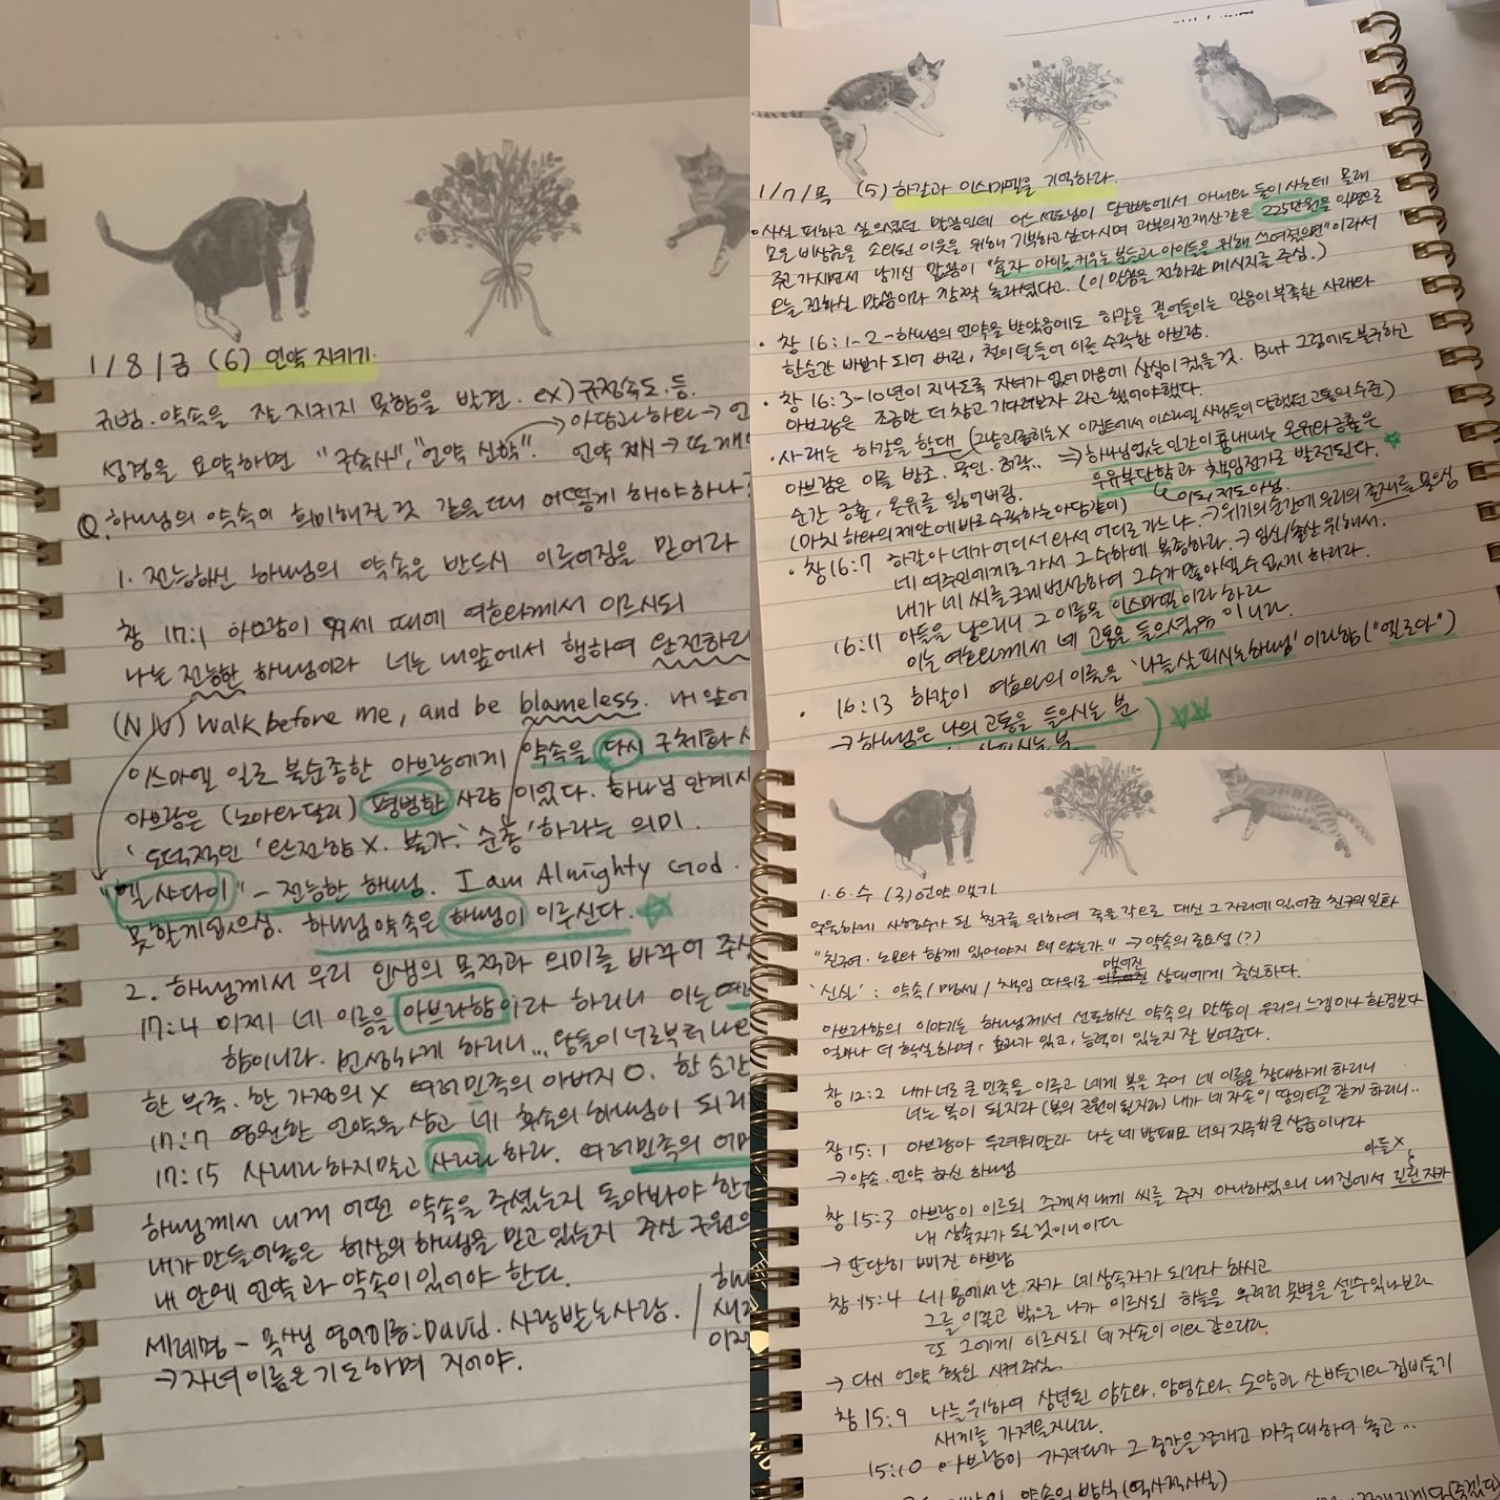 1/8/금 (6) 언약 지키기.
규범. 약속을 잘 지키지 못함을 발견. ex) 규정속도. 등.
→ 아담과 하와 →
성경을 요약하면 "구속사", "언약 신학". 언약 제시 → 또
Q. 하나님의 약속이 희미해질 것 같을 때 어떻게 해야하나?
1. 전능하신 하나님의 약속은 반드시 이루어짐을 믿어라
창 17:1 아브람이 99세 때에 여호와께서 이르시되
나는 전능한 하나님이라 너는 내앞에서 행하여 완전하라
(NIV) Walk before me, and be blameless. 내 앞에
이스마엘 일로 불순종한 아브람에게 약속을 다시 구체화
아브람은 (노아와 달리) 평범한 사람이었다. 하나님 안계시
'도덕적인' 완전함 X. 불가. '순종'하라는 의미.
"엘 샤다이" - 전능한 하나님. I am Almighty God.
못할게 없으심. 하나님 약속은 하나님이 이루신다. ☆
2. 하나님께서 우리 인생의 목적과 의미를 바꾸어 주
17:4 이제 네 이름을 아브라함이라 하리니 이는
함이니라. 번성하게 하리니... 왕들이 너로부터
한 부족. 한 가정의 X 여러민족의 아버지 O. 한 순간
17:7 영원한 언약을 삼고 네 후손의 하나님이 되리
17:15 사래라 하지말고 사라라 하라. 여러민족의 어머
하나님께서 내게 어떤 약속을 주셨는지 돌아봐야 한다
내가 만들어놓은 허상의 하나님을 믿고 있는지 주신 구원의
내 안에 언약과 약속이 있어야 한다.
세례명 - 목사님 영어이름: David. 사랑받는사람.
→ 자녀 이름은 기도하며 지어야.
1/7/목 (5) 하갈과 이스마엘을 기억하라.
사실 피하고 싶으셨던 말씀인데 어느 성도님이 단칸방에서 아내와 둘이 사는데 몰래
모은 비상금을 소외된 이웃을 위해 기부하고 싶다시며 과부의 전재산 같은 225만원을 익명으로
주고 가시면서 남기신 말씀이 "혼자 아이를 키우는 분들과 아이들을 위해 쓰여졌으면"이라서
오늘 전하실 말씀이라 깜짝 놀라셨다고. (이 말씀을 전하란 메시지를 주심.)
• 창 16:1-2 - 하나님의 언약을 받았음에도 하갈을 끌어들이는 믿음이 부족한 사래와
한순간 바보가 되어 버린, 천이달들어 이를 수락한 아브람.
• 창 16:3-10년이 지나도록 자녀가 없어 마음에 상심이 컸을 것. But 그럼에도 불구하고
아브람은 조금만 더 참고 기다려보자 라고 했어야했다.
• 사래는 하갈을 학대 (그냥 괴롭히는X 이집트에서 이스라엘 사람들이 당했던 고통의 수준)
아브람은 이를 방조. 묵인. 허락.. ⇒ 하나님없는 인간이 흉내내는 온유와 긍휼은
순간 긍휼, 온유를 잃어버림. 우유부단함과 책임전가로 발전된다. ☆
(마치 하와의 제안에 바로 수락하는 아담같이) 이도, 저도 아님.
• 창 16:7 하갈아 네가 어디서 와서 어디로 가느냐. → 위기의 순간에 우리의 존재를 물으심
네 여주인에게로 가서 그 수하에 복종하라. → 임신/출산 위해서.
내가 네 씨를 크게 번성하여 그 수가 많아 셀 수 없게 하리라.
16:11 아들을 낳으리니 그 이름을 이스마엘이라 하라
이는 여호와께서 네 고통을 들으셨음이니라.
• 16:13 하갈이 여호와의 이름을 '나를 살피시는 하나님' 이라함 ("엘로이")
→ 하나님은 나의 고통을 들으시는 분 ) ☆☆
살피시는 분
1.6.수 (3) 언약 맺기
억울하게 사형수가 된 친구를 위하여 죽을 각오로 대신 그 자리에 있어준 친구의 일화
"친구여. 노모와 함께 있어야지 왜 왔는가." → 약속의 중요성(?)
맺어진
'신실' : 약속/맹세/책임 따위로 상대에게 충실하다.
아브라함의 이야기는 하나님께서 선포하신 약속의 말씀이 우리의 느낌이나 환경보다
얼마나 더 확실하며, 효과가 있고, 능력이 있는지 잘 보여준다.
창 12:2 내가 너로 큰 민족을 이루고 네게 복을 주어 네 이름을 창대하게 하리니
너는 복이 될지라 (복의 근원이 될지라) 내가 네 자손이 땅의 티끌 같게 하리니..
창 15:1 아브람아 두려워말라 나는 네 방패요 너의 지극히 큰 상급이니라
→ 약속. 언약 하신 하나님
아들 X
창 15:3 아브람이 이르되 주께서 내게 씨를 주지 아니하셨으니 내 집에서 길린 자가
내 상속자가 될 것이니이다
→ 단단히 삐진 아브람
창 15:4 네 몸에서 난 자가 네 상속자가 되리라 하시고
그를 이끌고 밖으로 나가 이르시되 하늘을 우러러 뭇별을 셀수있나보라
또 그에게 이르시되 네 자손이 이와 같으리라.
→ 다시 언약 확인 시켜주심.
창 15:9 나를 위하여 삼년된 암소와, 암염소와, 숫양과 산비둘기와 집비둘기
새끼를 가져올지니라.
15:10 아브람이 가져다가 그 중간을 쪼개고 마주 대하여 놓고...
약속의 방식 (역사적사실)